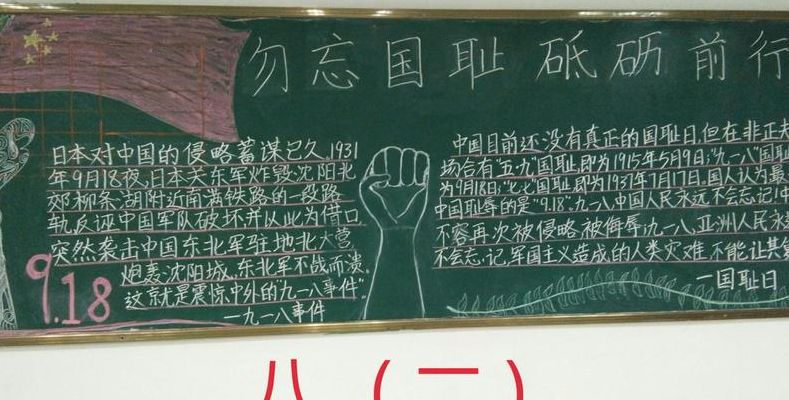 勿忘国耻 砥砺前行
日本对中国的侵略蓄谋已久,1931
年9月18夜,日本关东军炸毁沈阳北
郊柳条湖附近南满铁路的一段路
轨,反诬中国军队破坏并以此为借口
突然袭击中国东北军驻地北大营,
炮轰沈阳城,东北军不战而溃。
这就是震惊中外的九一八事件"
一九一八事件
9.18
中国目前还没有真正的国耻日,但在非正
场合有"五·九"国耻即为1915年5月9日;"九一八"国耻
为9月18日;"七七"国耻即为1937年7月17日,国人认为最
中国耻辱的是"9.18".九一八,中国人民永远不会忘记!中
不容再次被侵略,被侮辱!九一八,亚洲人民永
不会忘记,军国主义造成的人类灾难,不能让其
一国耻日
八(二)